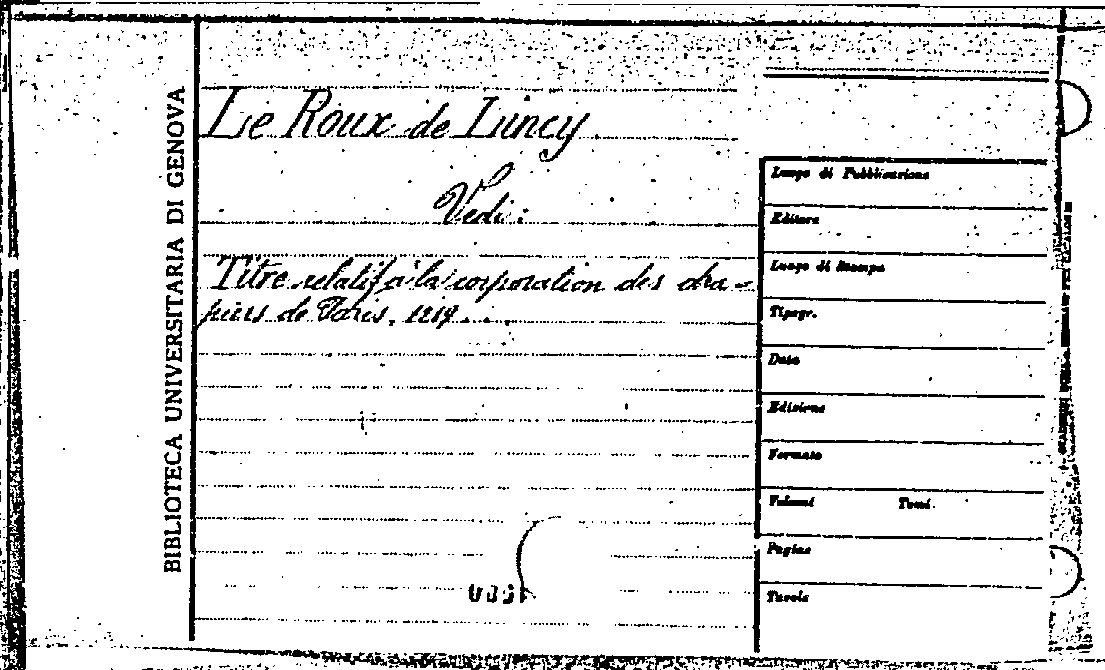 BIBLIOTECA UNIVERSITARIA DI GENOVA
Le Roux de Lincy
Vedi:
Titre relatif à la corporation des dra-
piers de Paris, 1219...
Luogo di Pubblicazione
Editore
Luogo di Stampa
Tipogr.
Data
Edizione
Formato
Volumi Tomi
Pagine
Tavole